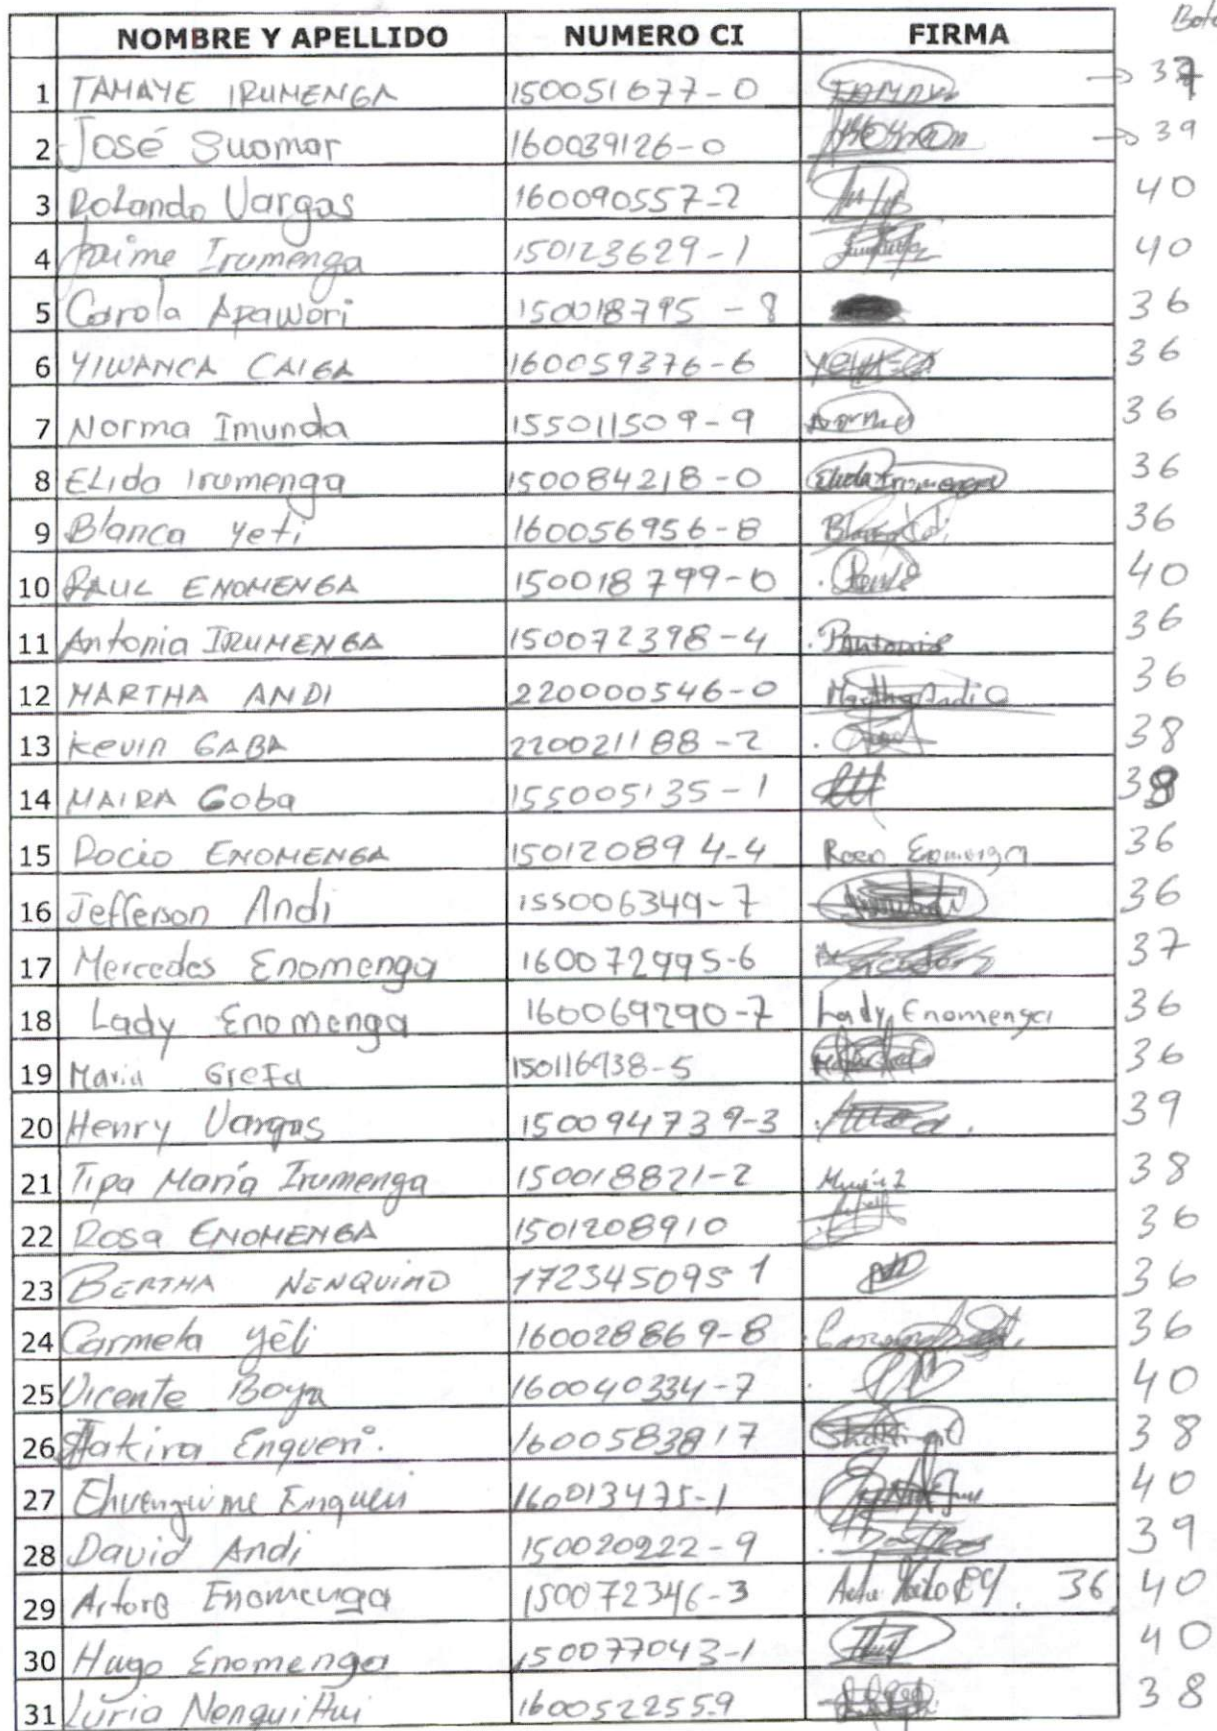 Bota
NOMBRE Y APELLIDO NUMERO CI FIRMA
1 TAMAYE IRUMENGA 150051677-0 → 37
2 José Guomar 160039126-0 → 39
3 Rolando Vargas 160090557-2 40
4 Jaime Irumenga 150123629-1 40
5 Carola Apawori 150018795-8 36
6 YIWANCA CAIGA 160059376-6 36
7 Norma Imunda 155011509-9 Norma 36
8 ELida Irumenga 150084218-0 Elida Irumenga 36
9 Blanca Yeti 160056956-8 36
10 RAUL ENOMENGA 150018799-0 40
11 Antonia IRUMENGA 150072398-4 Antonia 36
12 MARTHA ANDI 220000546-0 Martha Andi 36
13 Kevin GABA 220021188-2 38
14 MAIRA Goba 155005135-1 38
15 Rocio ENOMENGA 150120894-4 Rocio Enomenga 36
16 Jefferson Andi 155006349-7 36
17 Mercedes Enomenga 160072995-6 37
18 Lady Enomenga 160069290-7 Lady Enomenga 36
19 Maria Grefa 150116938-5 36
20 Henry Vargas 150094739-3 39
21 Tipa María Irumenga 150018821-2 38
22 Rosa ENOMENGA 1501208910 36
23 BERTHA NENQUIMO 172345095 1 36
24 Carmela Yeti 160028869-8 36
25 Vicente Boya 160040334-7 40
26 Enqueri 1600583817 38
27 Enqueri 160013475-1 40
28 David Andi 150020222-9 39
29 Arturo Enomenga 150072346-3 36 40
30 Hugo Enomenga 150077043-1 40
31 Luria Nenquihui 1600522559 38